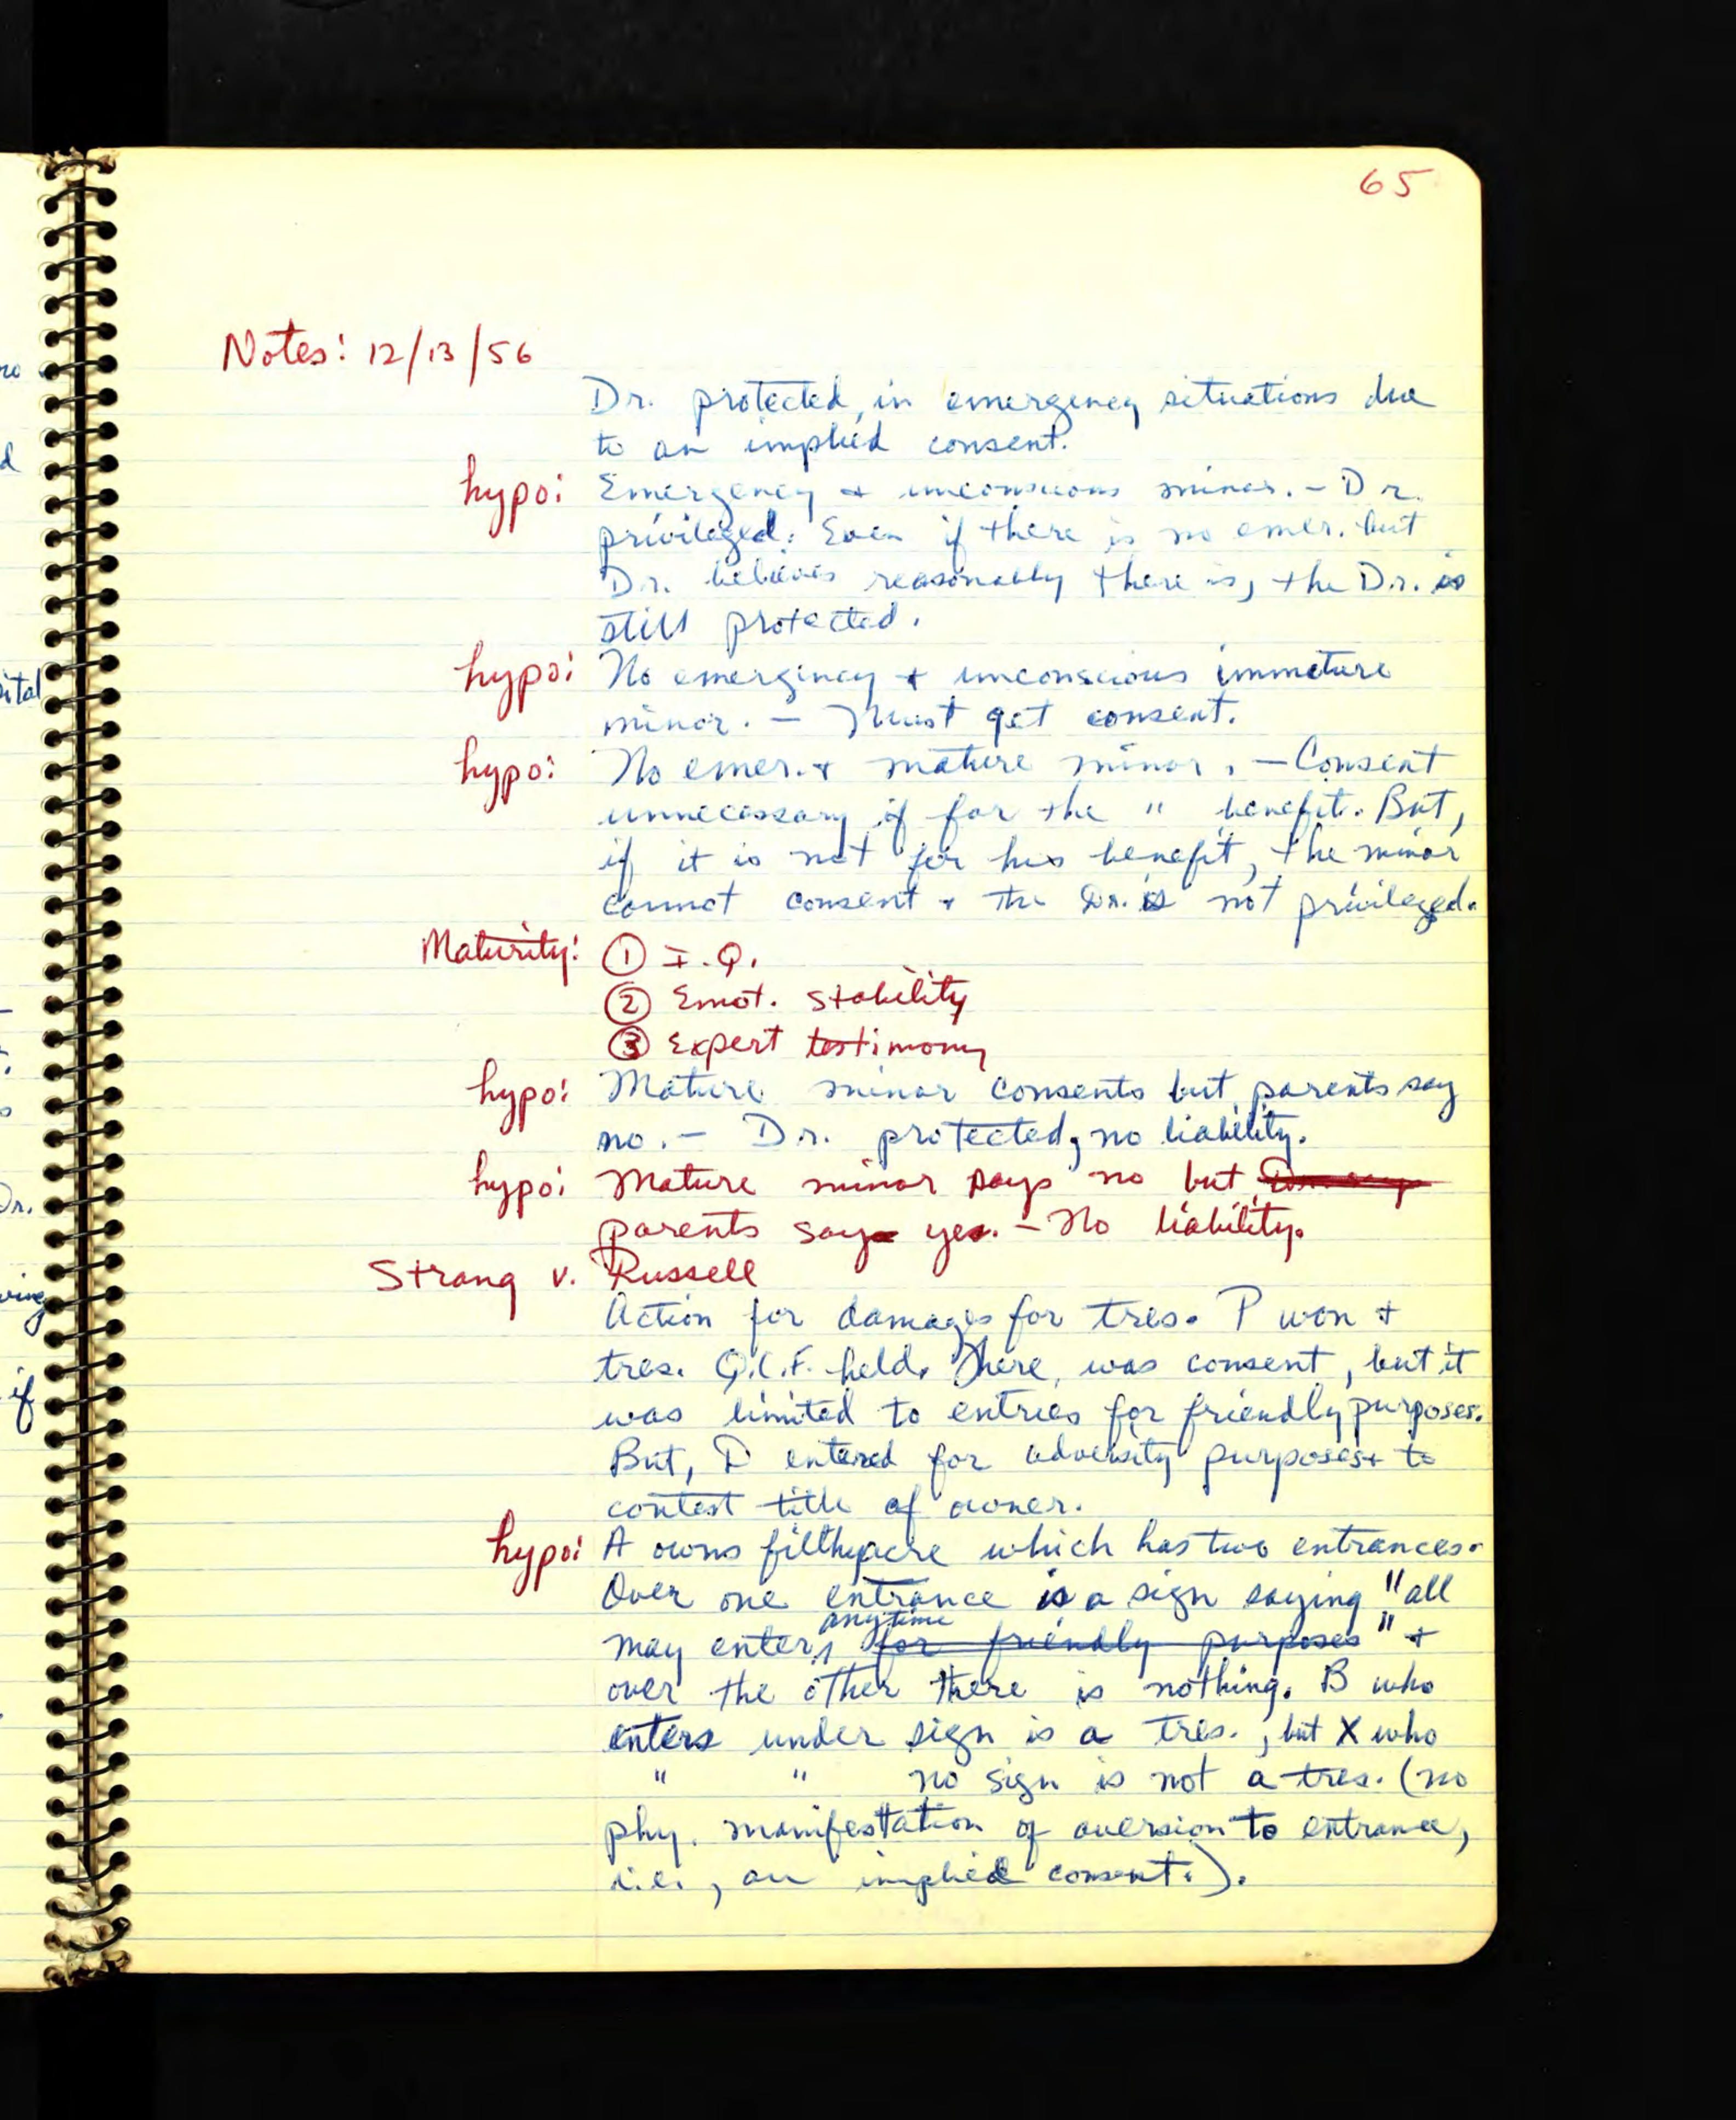 65
Notes: 12/13/56
Dr. protected, in emergency situations due
to an implied consent.
hypo: Emergency + unconscious minor. - Dr.
privileged. Even if there is no emer. but
Dr. believes reasonably there is, the Dr. is
still protected.
hypo: No emergency + unconscious immature
minor. - Must get consent.
hypo: No emer. + mature minor. - Consent
unnecessary if for the " benefit. But,
if it is not for his benefit, the minor
cannot consent + the Dr. is not privileged.
Maturity: ① I.Q.
② Emot. stability
③ Expert testimony
hypo: Mature minor consents but parents say
no. - Dr. protected, no liability.
hypo: Mature minor says no but
parents say yes. - No liability.
Strang v. Russell
Action for damages for tres. P won +
tres. Q.C.F. held. There was consent, but it
was limited to entries for friendly purposes.
But, D entered for adversity purposes + to
contest title of owner.
hypo: A owns filthyacre which has two entrances.
Over one entrance is a sign saying "all
anytime
may enter, for friendly purposes" +
over the other there is nothing. B who
enters under sign is a tres., but X who
" " no sign is not a tres. (no
phy. manifestation of aversion to entrance,
i.e., an implied consent.).
ital
Dr.
ving
if